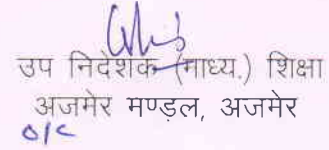 उप निदेशक (माध्य.) शिक्षा
अजमेर मण्ड़ल, अजमेर
O/C